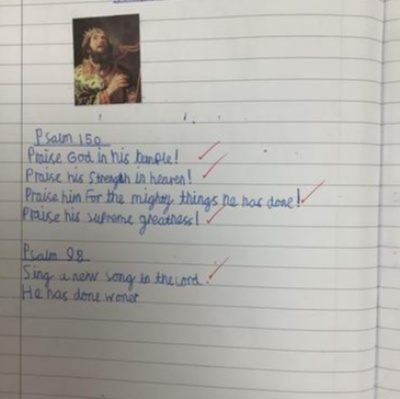 Psalm 150
Praise God in his temple!
Praise his Strength in heaven!
Praise him For the mighty things he has done!
Praise his supreme greatness!
Psalm 98
Sing a new song to the Lord.
He has done woner